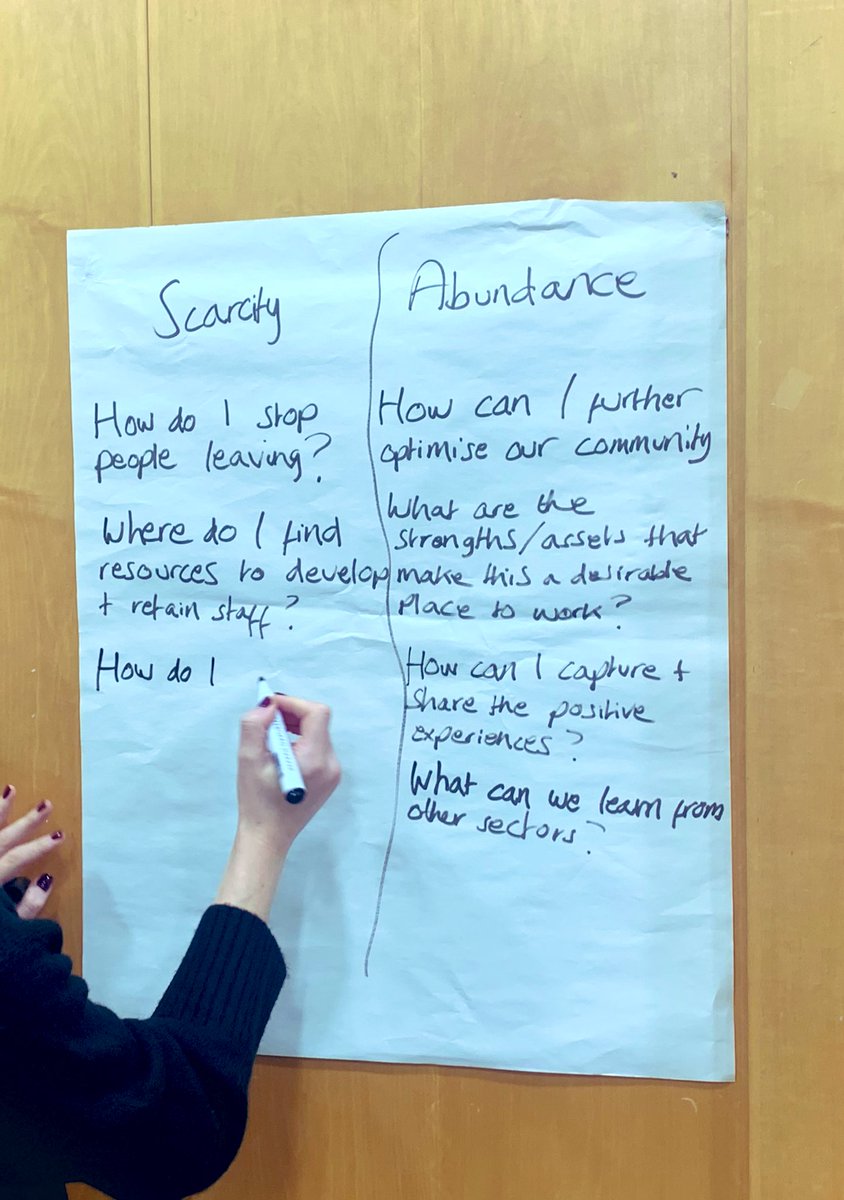 Scarcity
How do I stop
people leaving?
Where do I find
resources to develop
+ retain staff?
How do I
Abundance
How can I further
optimise our community
What are the
strengths/assets that
make this a desirable
place to work?
How can I capture +
share the positive
experiences?
What can we learn from
other sectors?